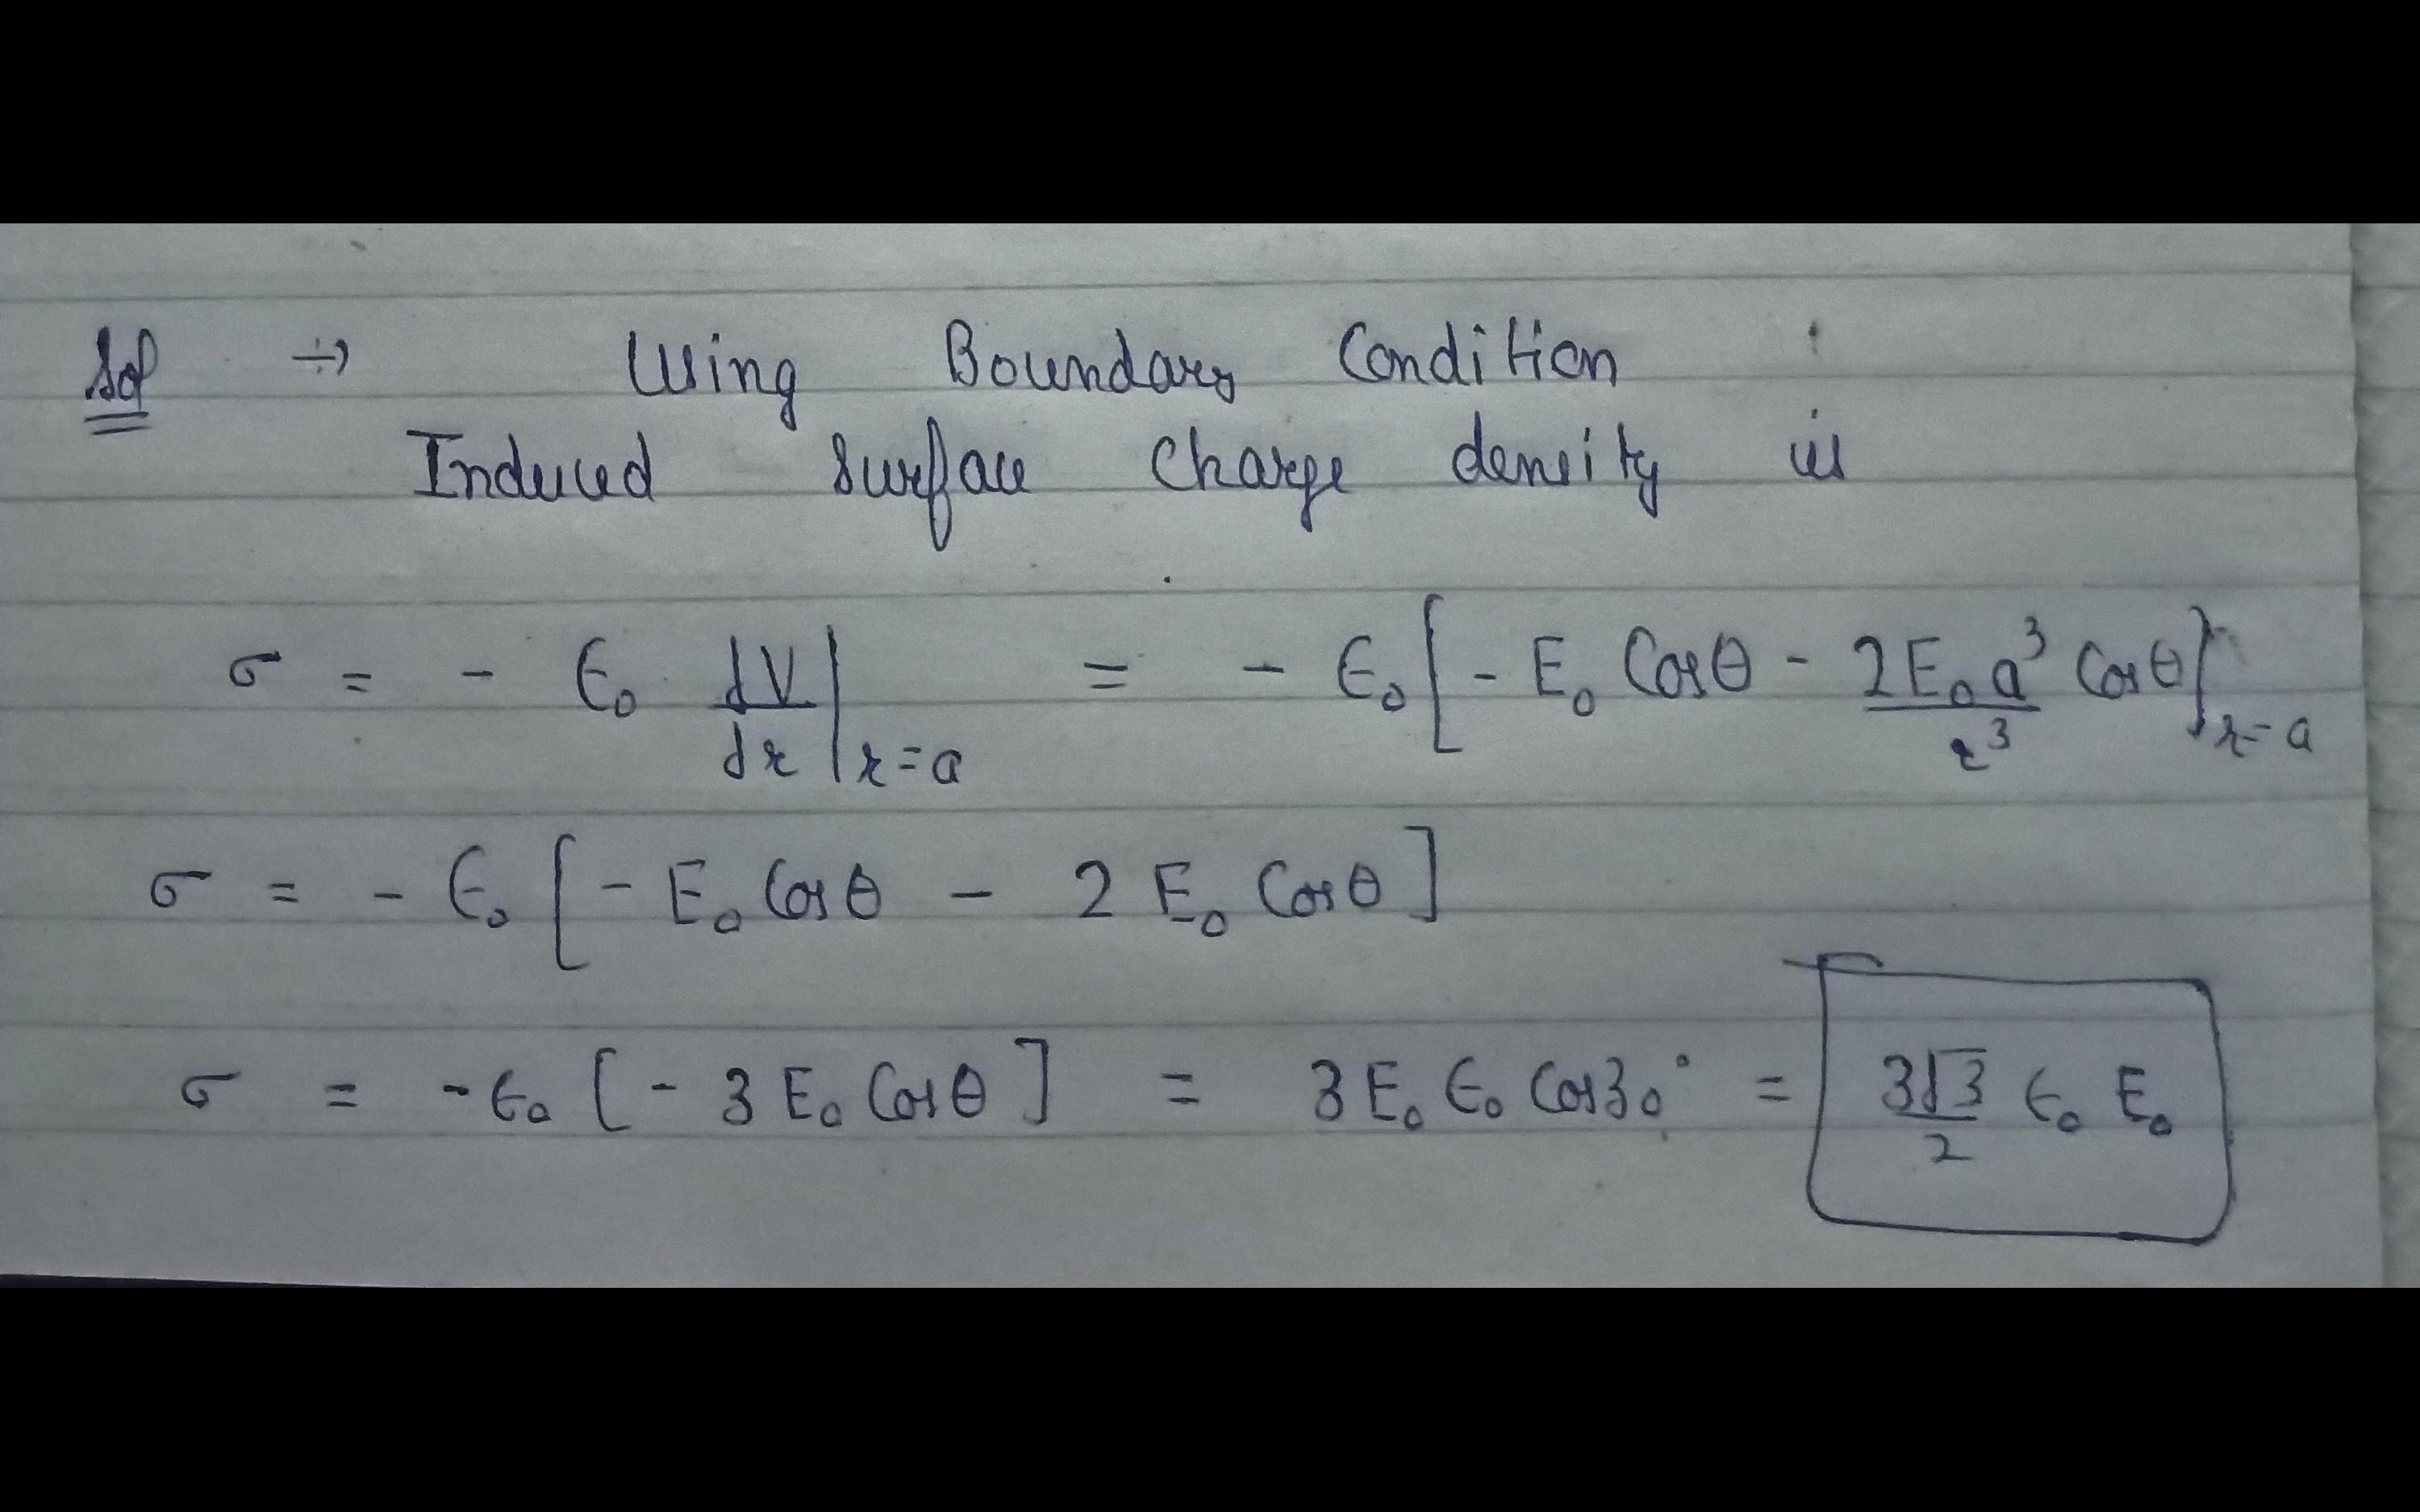 Sol → Using Boundary Condition
Induced surface charge density is
σ = - ϵ₀ dV/dr |r=a = - ϵ₀ [ - E₀ Cosθ - 2E₀a³/r³ Cosθ ]r=a
σ = - ϵ₀ [ - E₀ Cosθ - 2 E₀ Cosθ ]
σ = - ϵ₀ [ - 3 E₀ Cosθ ] = 3 E₀ ϵ₀ Cos30° = 3√3/2 ϵ₀ E₀